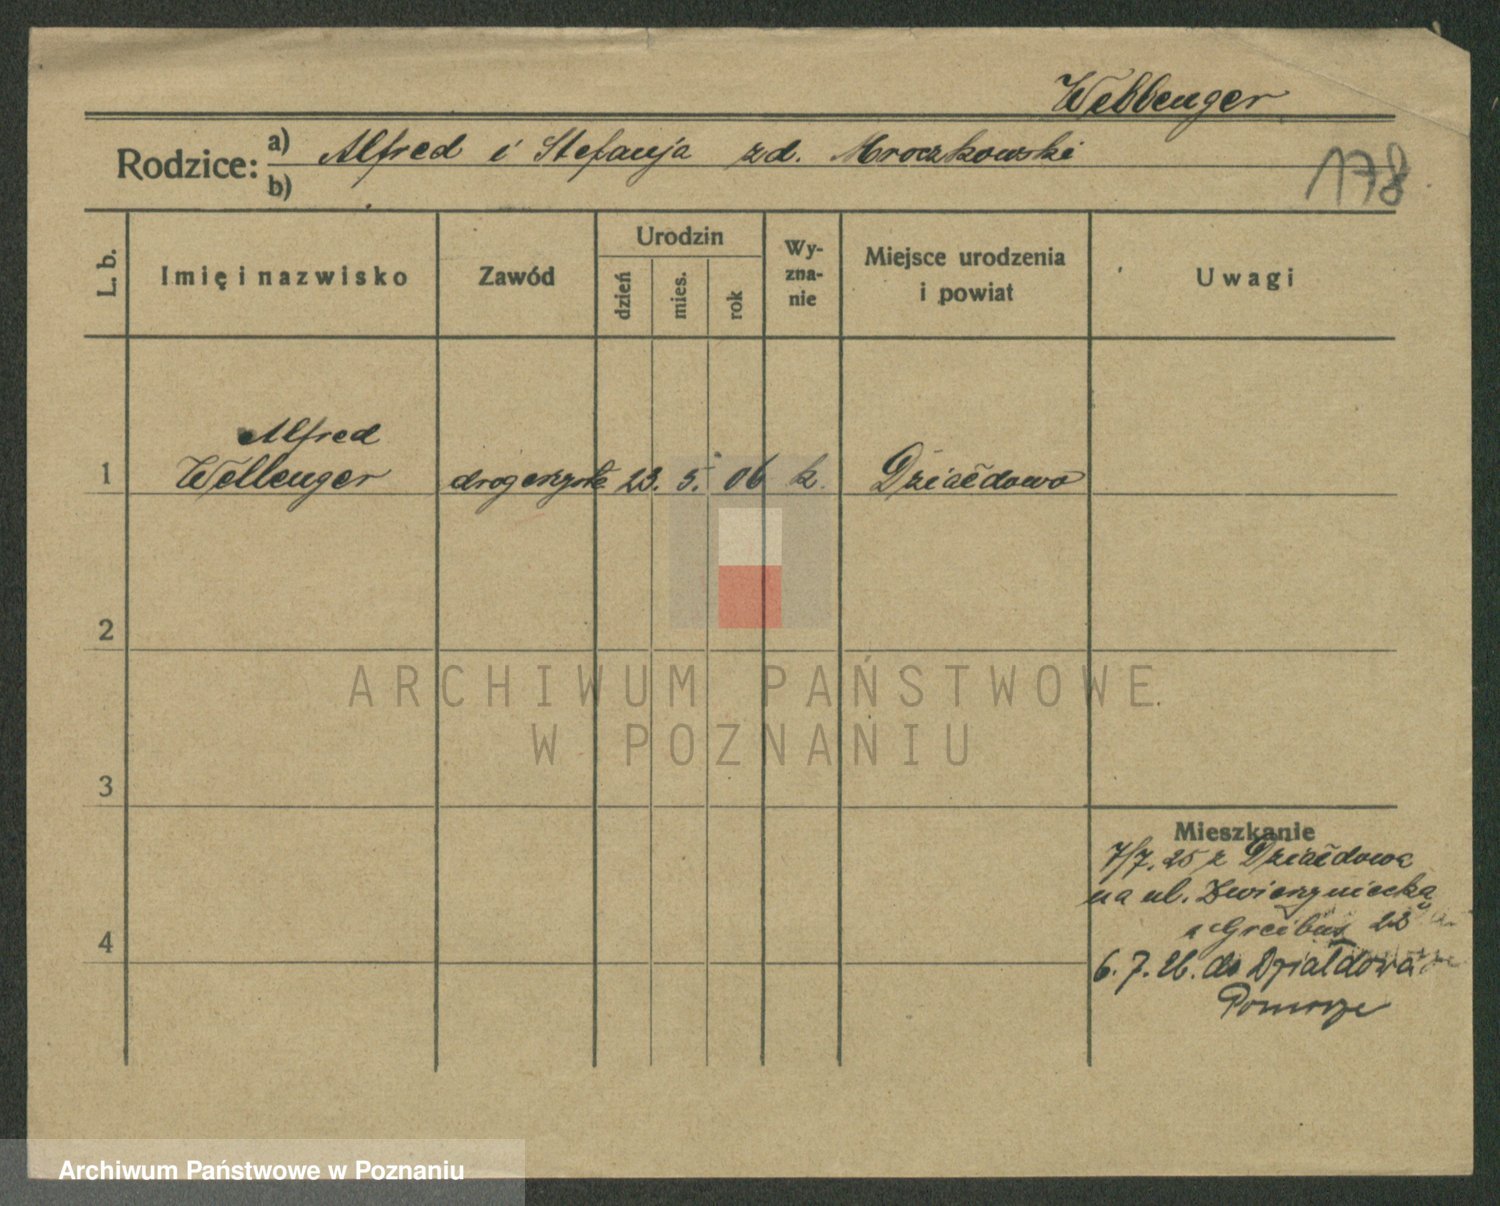 Wellenger
Rodzice: a) Alfred i Stefanja zd. Mroczkowski
b)
178
L. b.
Imię i nazwisko
Zawód
Urodzin
dzień
mies.
rok
Wy-
zna-
nie
Miejsce urodzenia
i powiat
Uwagi
Alfred
1 Wellenger drogerzysta 23. 5. 06 k. Działdowo
2
3
4
Mieszkanie
7/7. 25 z Działdowa
na ul. Zwierzyniecka
22
6. 7. 26. do Działdowa
Pomorze
ARCHIWUM PAŃSTWOWE
W POZNANIU
Archiwum Państwowe w Poznaniu